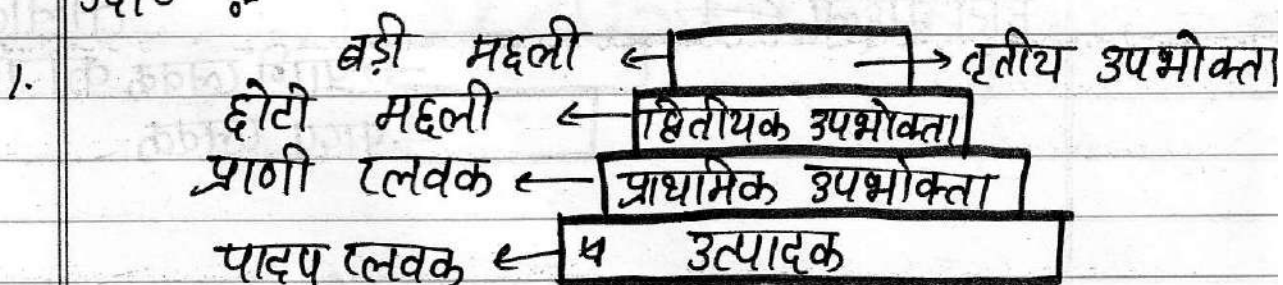 1. बड़ी मछली ← → तृतीय उपभोक्ता
छोटी मछली ← द्वितीयक उपभोक्ता
प्राणी प्लवक ← प्राथमिक उपभोक्ता
पादप प्लवक ← उत्पादक